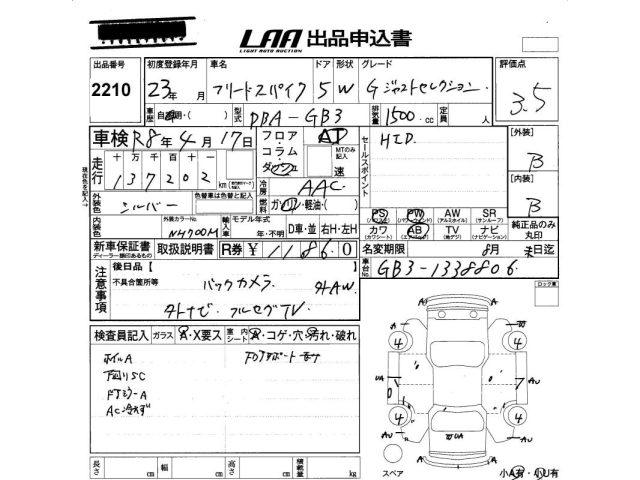 LAA 出品申込書
LIGHT AUTO AUCTION
出品番号 初度登録年月 車名 ドア 形状 グレード 評価点
2210 23年 月 フリードスパイク 5 W G ジャストセレクション 3.5
車歴 自 ・( ) 型式 DBA-GB3 排気量 1500.cc 定員 人
車検 R8年4月17日 フロア・コラム・ダッシュ AT MTのみ記入 速 セールスポイント HID. [外装] B
走行 十万千百十一 137202 km
現在色を記入→ 外装色 シルバー 色替車は色替と記入 冷房 AAC 燃料 ガソリン・軽油・( ) [内装] B
内装色 外装カラーNo. NH700M 輸入車 モデル年式 年・不明 D車・並 右H・左H
PS (パワステ) PW (パワーウィンドウ) AW (アルミホイル) SR (サンルーフ) 純正品のみ丸印
カワ (カワシート) AB (エアバッグ) TV (地デジ) ナビ (ナビゲーション)
新車保証書 ディーラー捺印あるもの 取扱説明書 R券 ¥11860 名変期限 8月末日迄
注意事項 後日品【 】 車台No. GB3-1338806
不具合箇所等 バックカメラ 外AW.
外ナビ. フルセグTV. ロック車
検査員記入 ガラス A・X要ス 室内シート A・コゲ・穴・汚れ・破れ
ホイルA
下回りSC
ドアミラーA
AC冷えず
A A
4 4
UA AU
4 4
AU
UA
A A
長さ cm 幅 cm 高さ cm 積載量 kg スペア 小A有・小U有